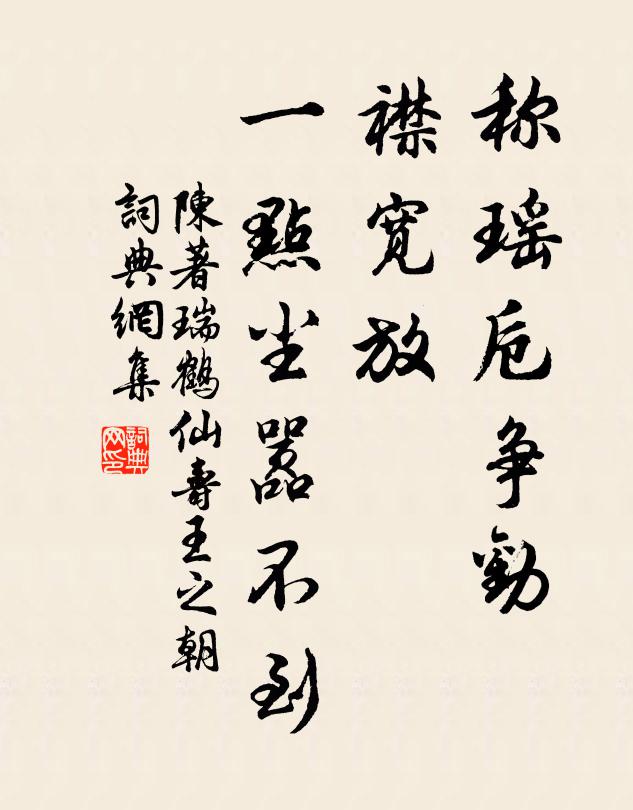 称瑶卮争勸
襟寬放
一點尘嚣不到
陳著瑞鶴仙壽王之朝
詞典網集
詞典网印